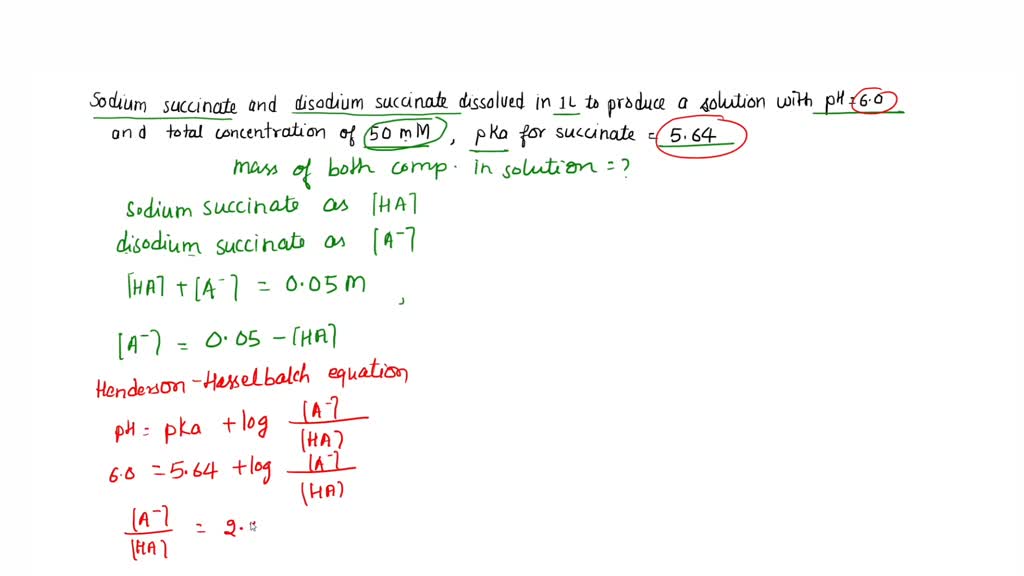 Sodium succinate and disodium succinate dissolved in 1L to produce a solution with pH=6.0
and total concentration of 50 mM, pka for succinate = 5.64
mass of both comp. in solution = ?
sodium succinate as [HA]
disodium succinate as [A⁻]
[HA] + [A⁻] = 0.05 M ,
[A⁻] = 0.05 - [HA]
Henderson-Hasselbalch equation
pH = pka + log [A⁻]/[HA]
6.0 = 5.64 + log [A⁻]/[HA]
[A⁻]/[HA] = 2.